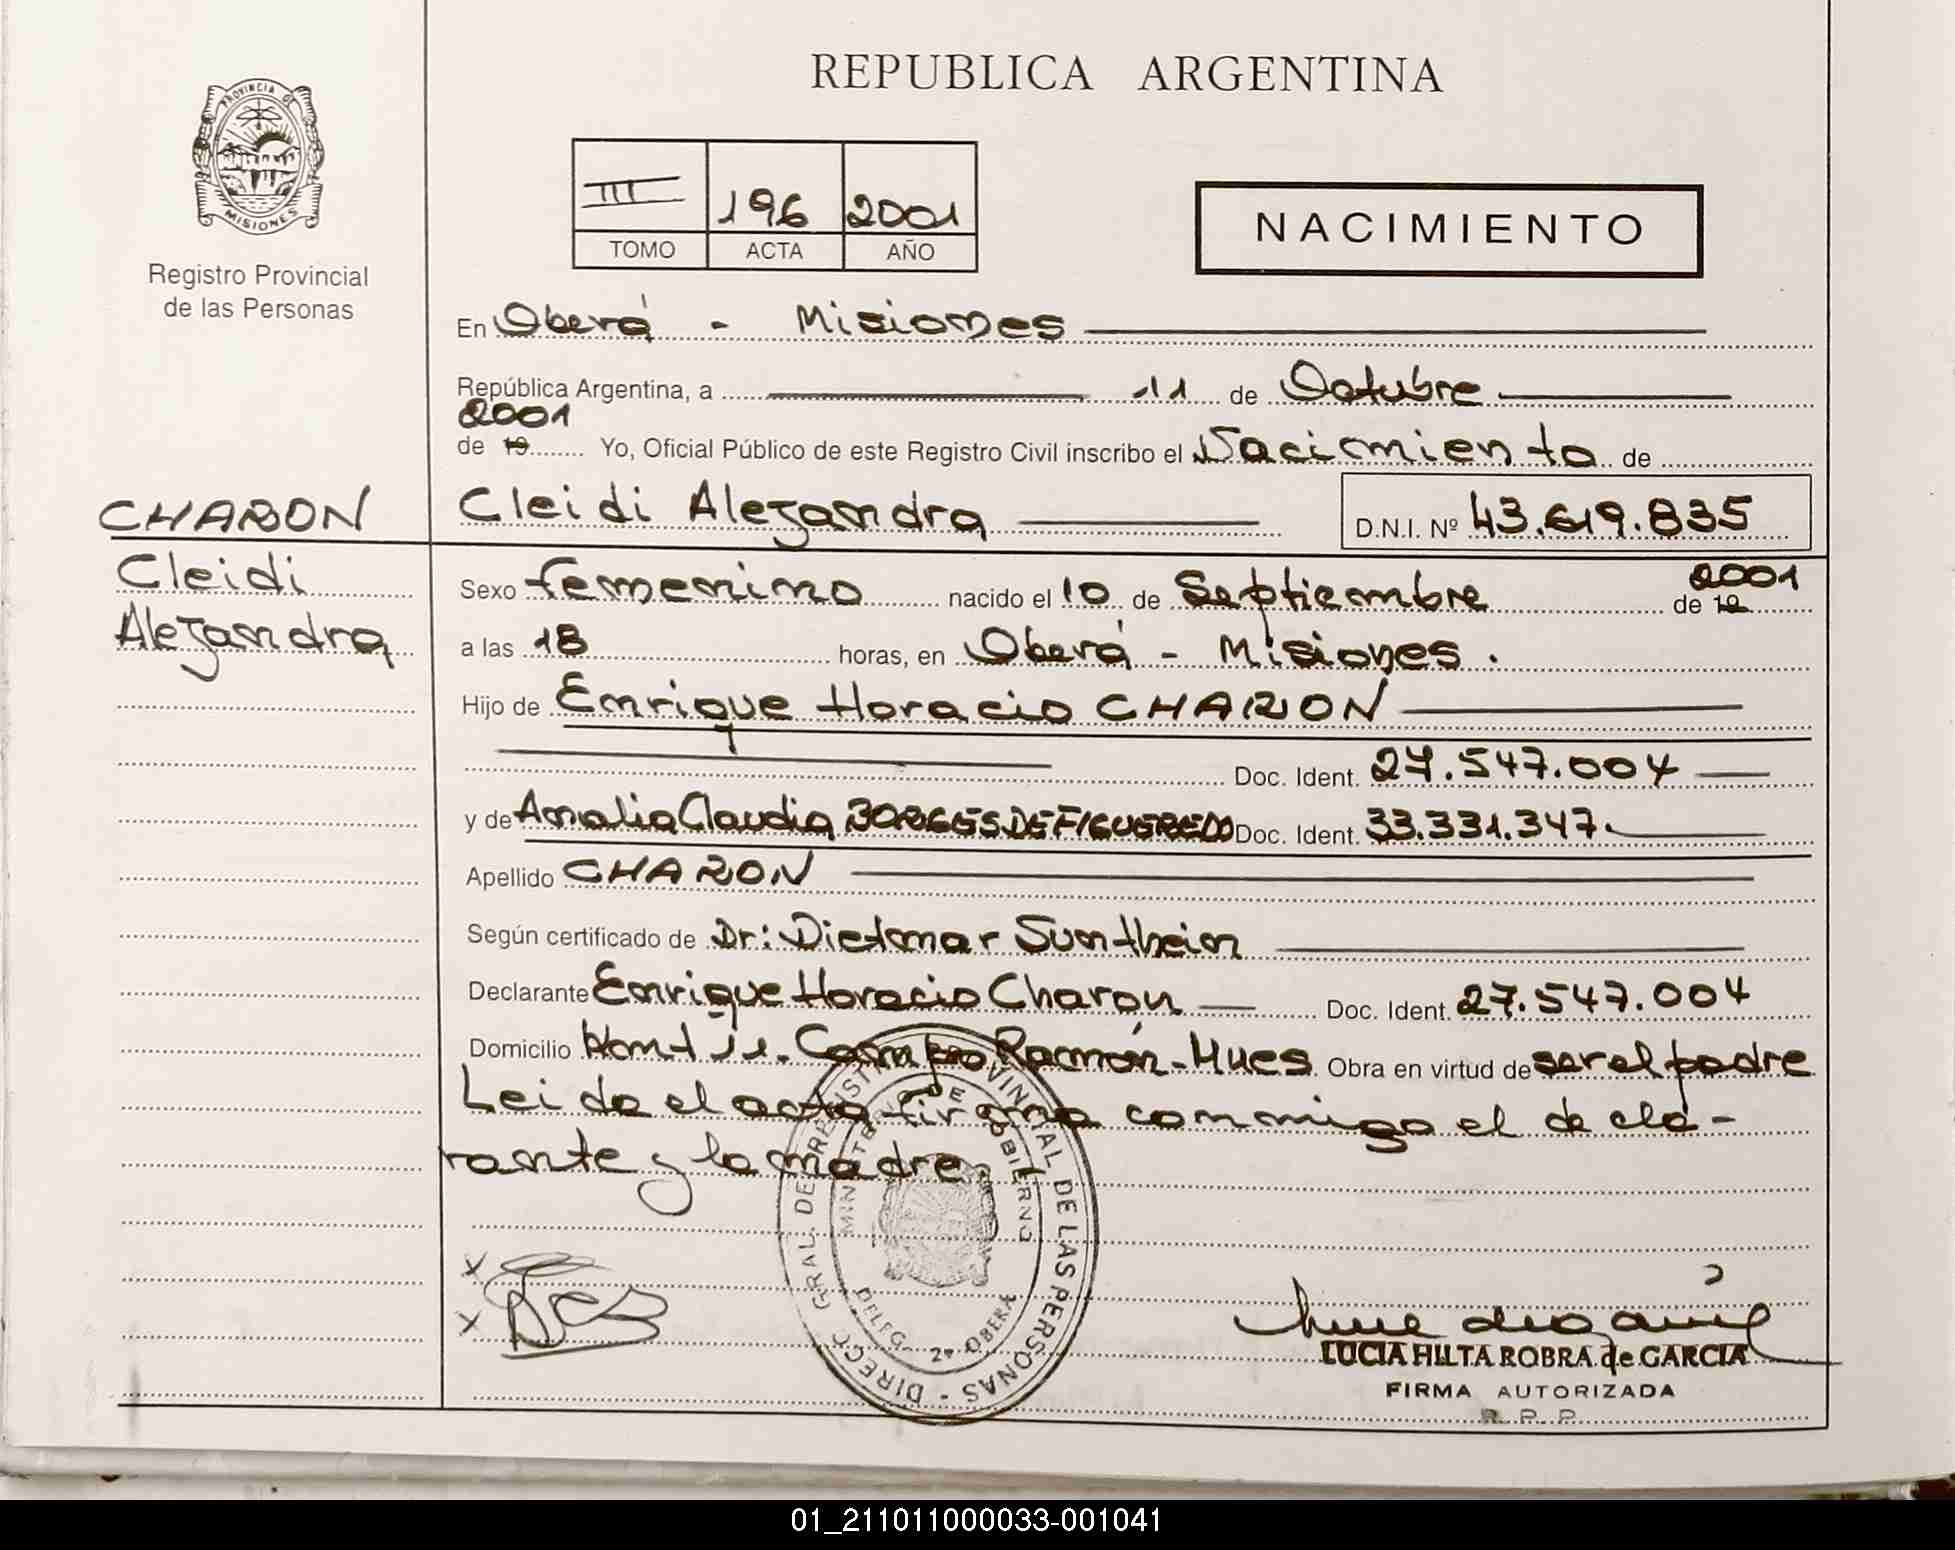 REPUBLICA ARGENTINA
PROVINCIA DE
MISIONES
Registro Provincial
de las Personas
III 196 2001
TOMO ACTA AÑO
NACIMIENTO
En Oberá - Misiones
República Argentina, a 11 de Octubre
2001
de 19 Yo, Oficial Público de este Registro Civil inscribo el Nacimiento de
CHARON
Cleidi Alejandra D.N.I. Nº 43.619.835
Cleidi
Alejandra
Sexo femenino nacido el 10 de Septiembre de 19 2001
a las 18 horas, en Oberá - Misiones.
Hijo de Enrique Horacio CHARON
Doc. Ident. 27.547.004
y de Amalia Claudia BORGES DE FIGUEREDO Doc. Ident. 33.331.347.
Apellido CHARON
Según certificado de Dr: Dietmar Sunthein
Declarante Enrique Horacio Charon Doc. Ident. 27.547.004
Domicilio Campo Ramón - Mnes Obra en virtud de ser el padre
Leida el acta firma conmigo el decla-
rante y la madre
DIRECC. GRAL. DEL REGISTRO PROVINCIAL DE LAS PERSONAS -
MINISTERIO DE GOBIERNO
DELEG. 2ª OBERA
X
X
LUCIA HILTA ROBRA de GARCIA
FIRMA AUTORIZADA
R. P. P.
01_211011000033-001041